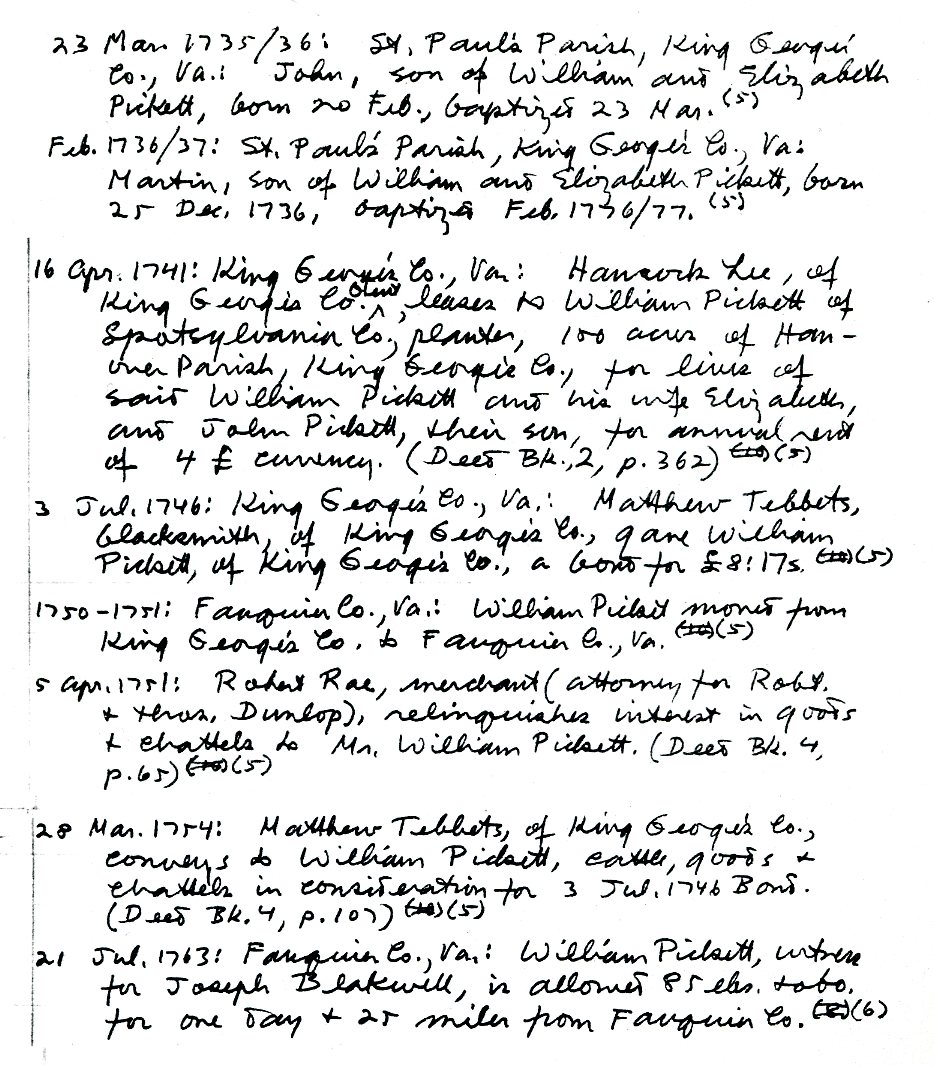 23 Mar. 1735/36: St. Paul's Parish, King George's
Co., Va.: John, son of William and Elizabeth
Pickett, born 20 Feb., baptized 23 Mar. (5)
Feb. 1736/37: St. Paul's Parish, King George's Co., Va:
Martin, son of William and Elizabeth Pickett, born
25 Dec. 1736, baptized Feb. 1736/77. (5)
16 Apr. 1741: King George's Co., Va.: Hancock Lee, of
King George's Co., leases to William Pickett of
Spotsylvania Co., planter, 100 acres of Han-
over Parish, King George's Co., for lives of
said William Pickett and his wife Elizabeth,
and John Pickett, their son, for annual rent
of 4 £ currency. (Deed Bk., 2, p. 362) (5)
3 Jul. 1746: King George's Co., Va.: Matthew Tebbets,
blacksmith, of King George's Co., gave William
Pickett, of King George's Co., a bond for £8:17s. (5)
1750-1751: Fauquier Co., Va.: William Pickett moved from
King George's Co. to Fauquier Co., Va. (5)
5 Apr. 1751: Robert Rae, merchant (attorney for Robt.
+ thos. Dunlop), relinquishes interest in goods
+ chattels to Mr. William Pickett. (Deed Bk. 4,
p. 65) (5)
28 Mar. 1754: Matthew Tebbets, of King George's Co.,
conveys to William Pickett, cattle, goods +
chattels in consideration for 3 Jul. 1746 Bond.
(Deed Bk. 4, p. 107) (5)
21 Jul. 1763: Fauquier Co., Va.: William Pickett, witness
for Joseph Blakwell, is allowed 85 lbs. tobo.
for one day + 25 miles from Fauquier Co. (6)